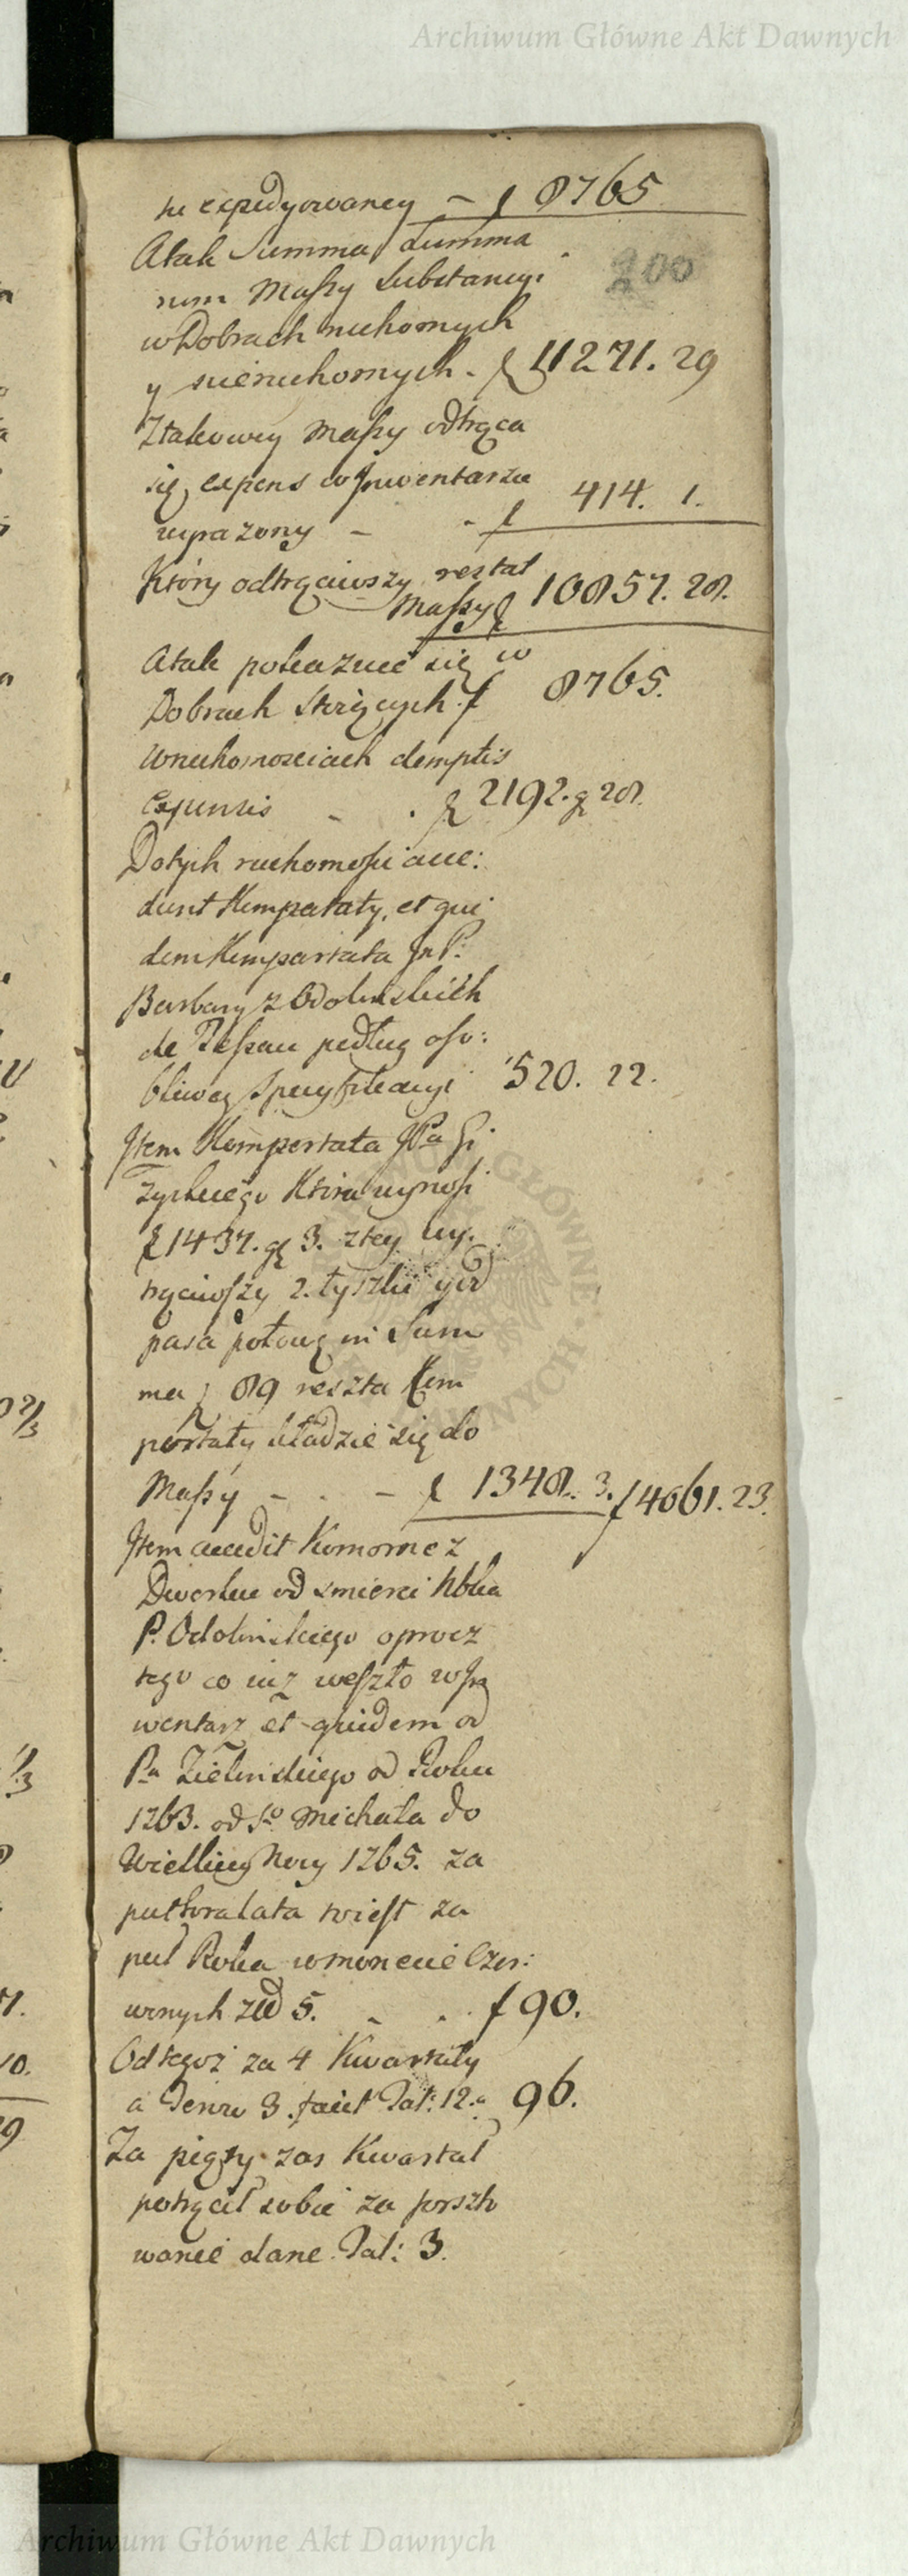 Archiwum Główne Akt Dawnych
tu expedyowaney – f 8765
200
Atak Summa Summa
rum Maßy Substancyi
w Dobrach ruchomych
y nieruchomych. f 11271. 29
Ztakowey Maßy odtrąca
się expens w Jnwentarzu
wyrażony – - f 414. 1.
Który odtrąciwszy restat
Maßy f 10857. 28.
Atak pokazuie się w
Dobrach stoiących f 8765.
W ruchomosciach demptis
Expensis - . f 2192. g 28.
Dotych ruchomości acce:
dunt Komportaty, et qui
dem Komportata Jm P:
Barbary z Odolinskich
de Teßau podług oso:
bliwey Specyfikacyi 520. 22.
Jtem Komportata JPa Gi
życkiego Która wynosi
f 1437. g 3. ztey wy.
trąciwszy 2. łyszki y od
pasa połowę in Sum
ma f 89 reszta Kom
portaty kładzie się do
Maßy - . - f 1348. 3. f 4061. 23.
Jtem accedit Komorne z
Dworku od smierci Nbla
P. Odolinskiego oprocz
tego co iuz weszło w Jn
wentarz et quidem od
Pa Zielinskiego od Roku
1763. od So Michała do
Wielkiey Nocy 1765. za
pułtora lata iest za
puł Roku w monecie Czer:
wonych zł 5. - . f 90.
Od tegoż za 4 Kwartały
a Tenro 3. facit Tal: 12. 96.
Za piąty zas Kwartał
potrącił sobie za porszto
wanie dane Tal: 3.
Archiwum Główne Akt Dawnych